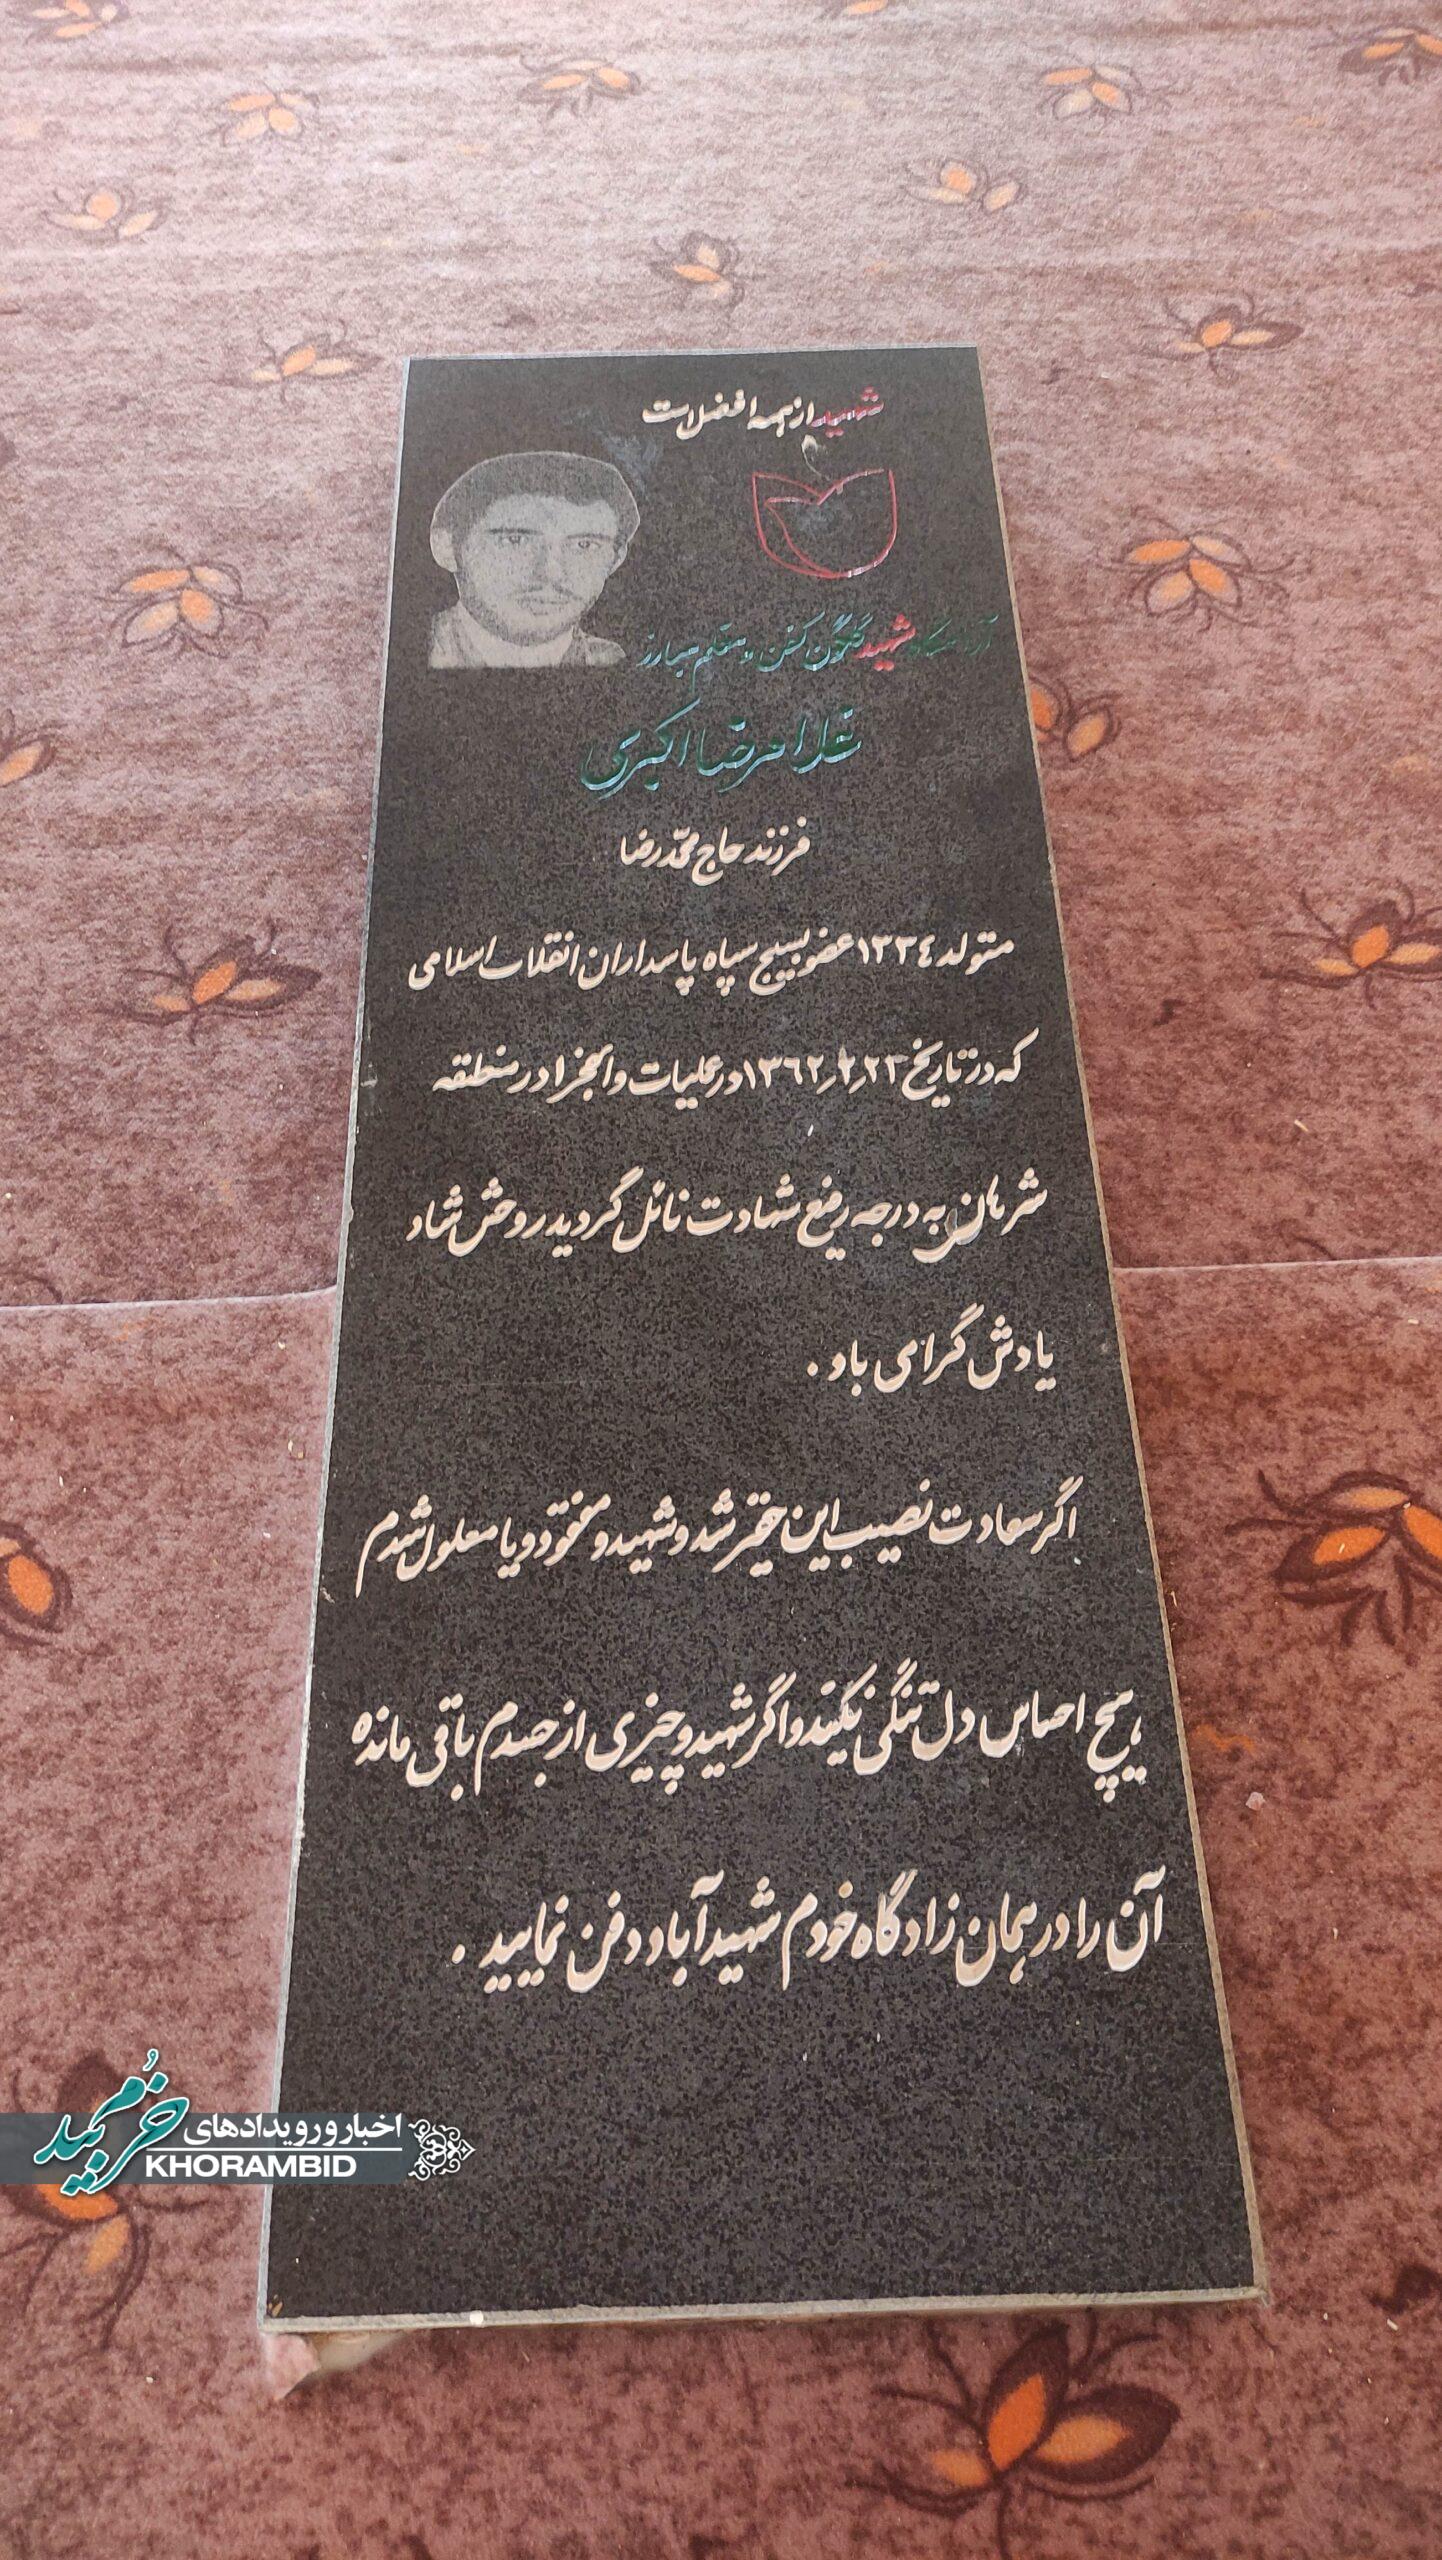 شهید از همه افضل است
آرامگاه شهید گلگون کفن و معلم مبارز
غلامرضا اکبری
فرزند حاج محمّد رضا
متولد ١٣٣٤ عضو بسیج سپاه پاسداران انقلاب اسلامی
که در تاریخ ١٣٦٢٫٢٫٢٣ در عملیات والفجر ا در منطقه
شرهان به درجه رفیع شهادت نائل گردید روحش شاد
یادش گرامی باد .
اگر سعادت نصیب این حقیر شد و شهید و مفقود و یا معلول شدم
هیچ احساس دل تنگی نکنید و اگر شهید و چیزی از جسدم باقی مانده
آن را در همان زادگاه خودم شهیدآباد دفن نمایید .
اخبار و رویدادهای
خُرمبید
KHORAMBID